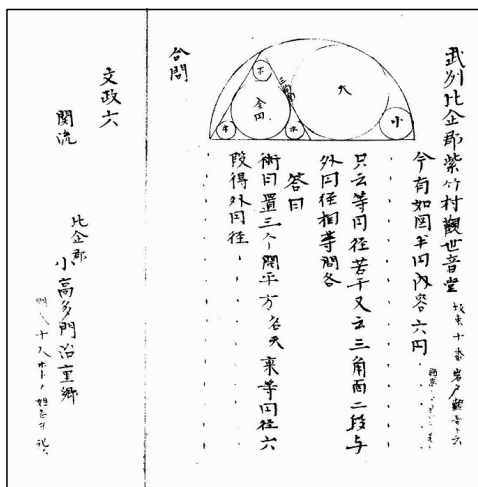 武列比企郡紫竹村觀世音堂
坂東十番岩戶觀音
今有如図半円內容六円
只云等円径若干又云三角面二段与
外円径相等問各
答曰
術曰置三个開平方名天乗等円径六
段得外円径
大
小
全円
ホ
ホ
ホ
三角面
合問
文政六
関流
比企郡
小高多門治重郷